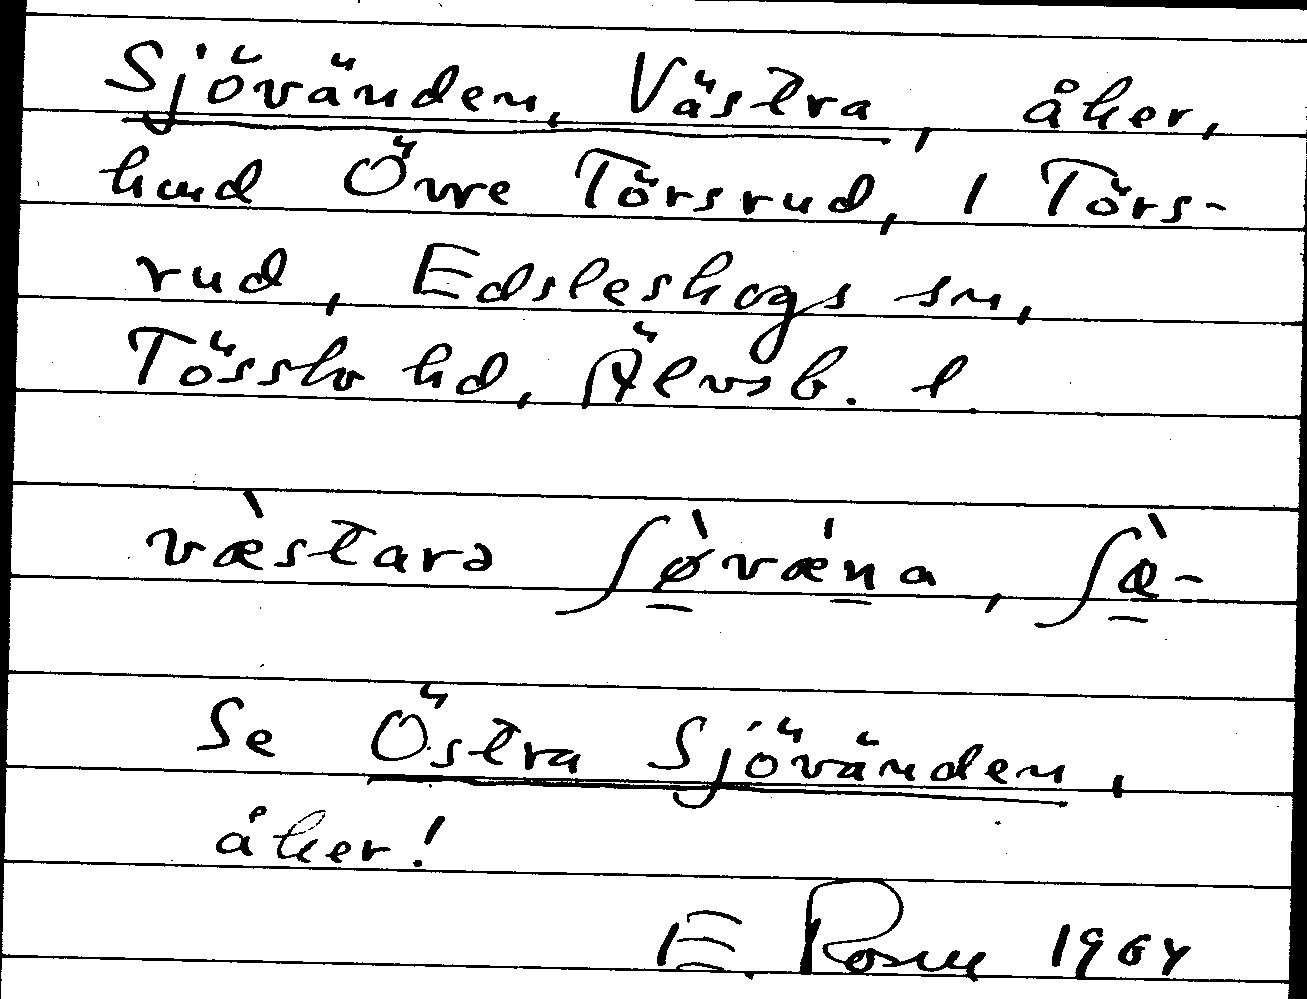 Sjövänden, Västra, åker,
hmd Övre Törsrud, 1 Törs-
rud, Edsleskogs sn,
Tössbo hd, Älvsb. l.
væ̀stara ʃø̀vǽna, ʃæ̀-
Se Östra Sjövänden,
åker!
E. Rosm 1964